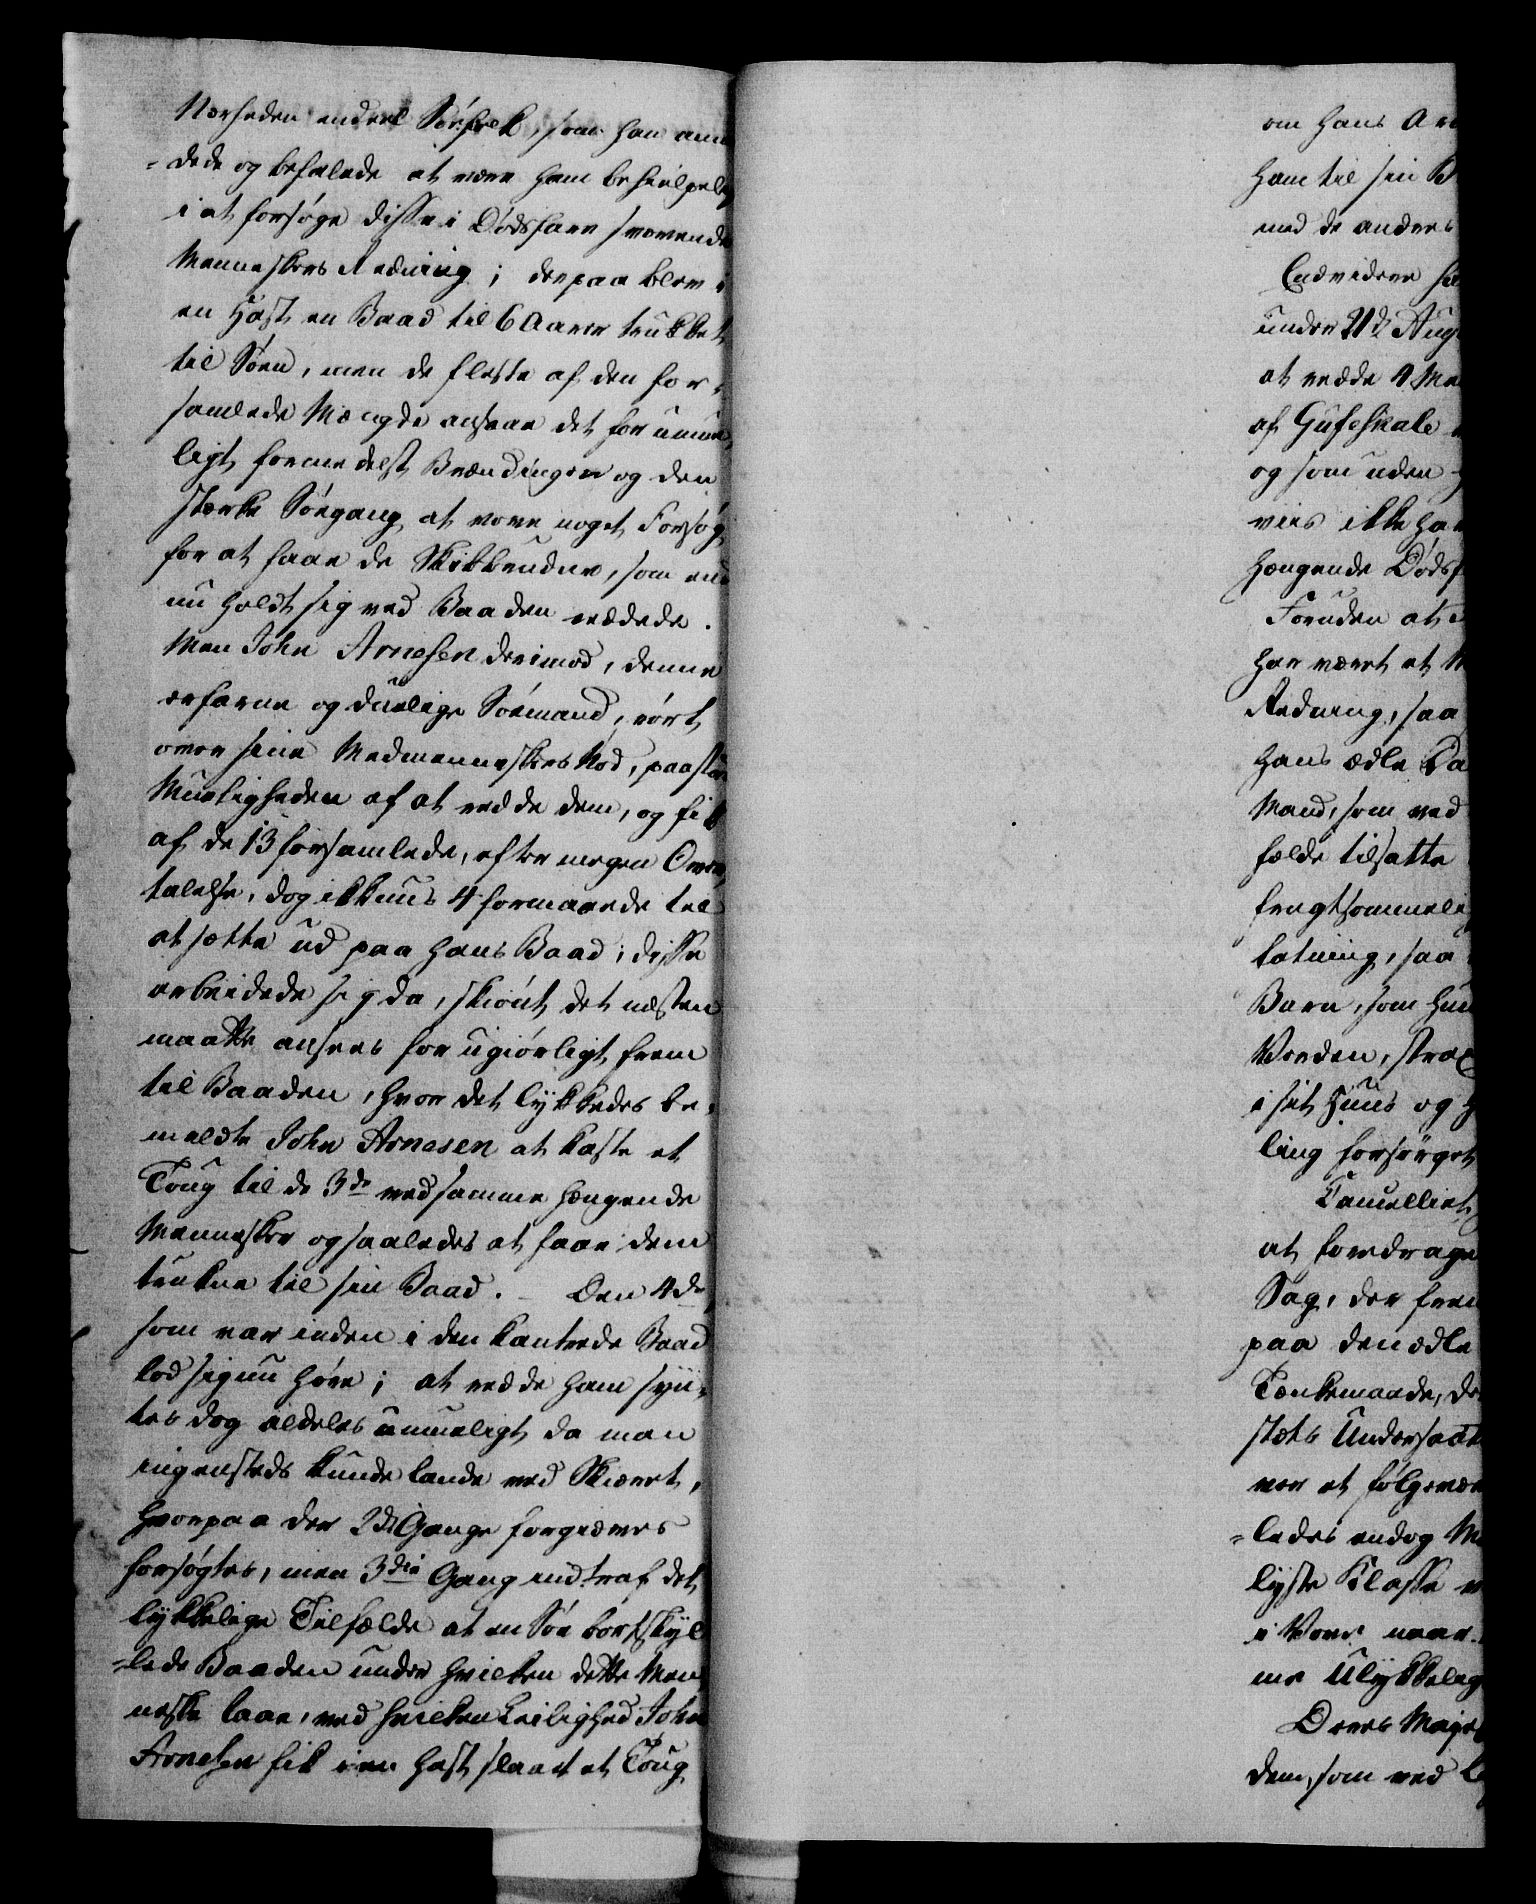 Nærheden endeel Søefolk, som han anm
=dede og befalede at være ham behielpelig
i at forsøge disse i Dødsfare svævende
Menneskers Redning; derpaa blev i
en Hast en Baad til 6 Aarer trukket
til Søen, men de fleste af den for-
samlede Mængde ansaae det for umue
ligt formedelst Brændingen og den
stærke Søegang at vove noget Forsøg
for at faae de Skibbrudne, som end
nu holdt sig ved Baaden reddede.
Men John Arnesen derimod, denne
erfarne og duelige Søemand, rørt
over sine Medmenneskers Nød, paastod
Mueligheden af at redde dem, og fik
af de 13 forsamlede, efter megen Over
talelse, dog ikkuns 4 formaaede til
at sætte ud paa hans Baad; disse
arbeidede sig da, skiønt det næsten
maatte ansees for ugiørligt frem
til Baaden, hvor det lykkedes be-
meldte John Arnesen at kaste et
Toug til de 3de ved samme hængende
Mennesker og saaledes at faae dem
trukne til sin Baad. – Den 4de
som var inden i den kantrede Baad
lod sig nu høre; at redde ham syn-
tes dog aldeles umueligt, da man
ingensteds kunde lande ved Skiæret,
hvorpaa der 2de Gange forgiæves
forsøgtes, men 3die Gang indtraf det
lykkelige Tilfælde at en Søe bortskyl
=lede Baaden under hvilken dette Men
neske laae, ved hvilken Leilighed John
Arnesen fik i en Hast slaaet et Toug
om hans Ar
ham til sin B
med de andres
Endvidere
under 21de Aug
at redde 4 Me
af Gufeskale
og som uden
viis ikke ha
hængende Dødsf
Foruden at
har været et
Redning, saa
hans ædle Da
Mand, som ved
fælde tilsatte
frugtsommelig
fatning, saa
Barn, som hun
Verden, strax
i sit Huus og
ling forsørget
Cancelliet
at foredrage
Sag, der frem
paa den ædle
Tænkemaade, de
stæts Undersaat
ver et følgevær
=ledes endog M
lyste Klasse
i Vore
me Ulykkelig
Deres Maje
dem, som ved